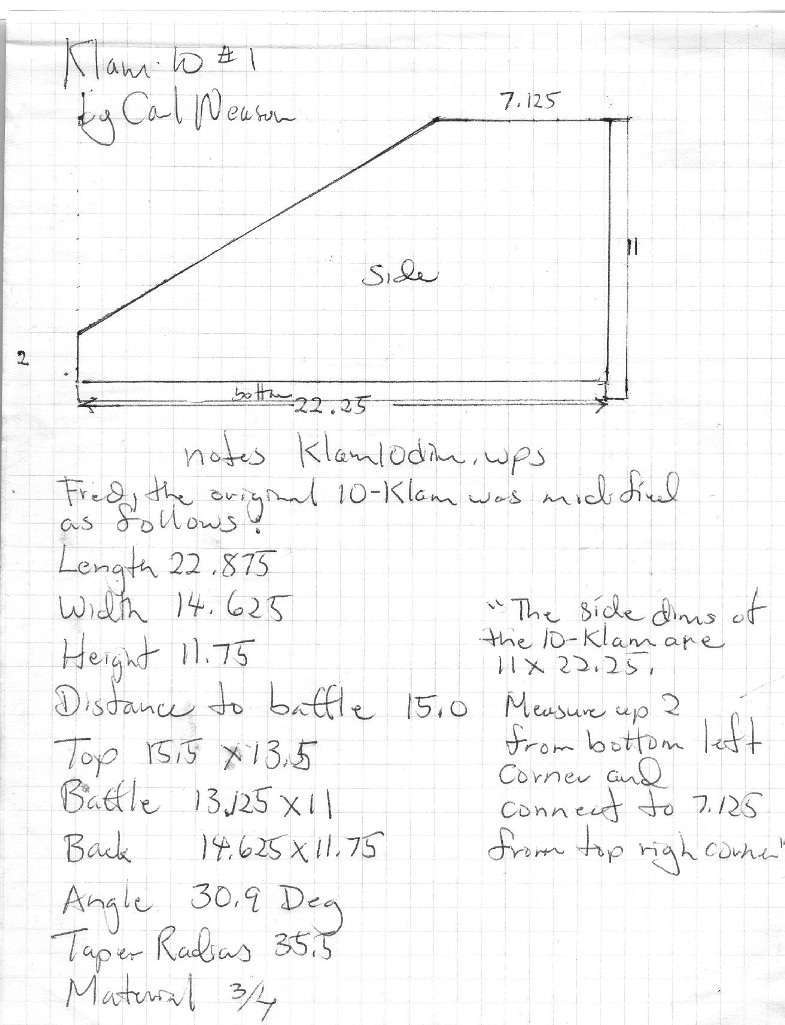 Klam 10 #1
by Carl Neuson
7.125
11
Side
2
bottm
22.25
notes Klam10dim.wps
Fred, the original 10-Klam was modified
as follows:
Length 22.875
Width 14.625
Height 11.75
Distance to baffle 15.0
Top 15.5 x 13.5
Baffle 13.125 x 11
Back 14.625 x 11.75
Angle 30.9 Deg
Taper Radius 35.5
Material 3/4
"The side dims of
the 10-Klam are
11 x 22.25.
Measure up 2
from bottom left
corner and
connect to 7.125
from top righ corner"